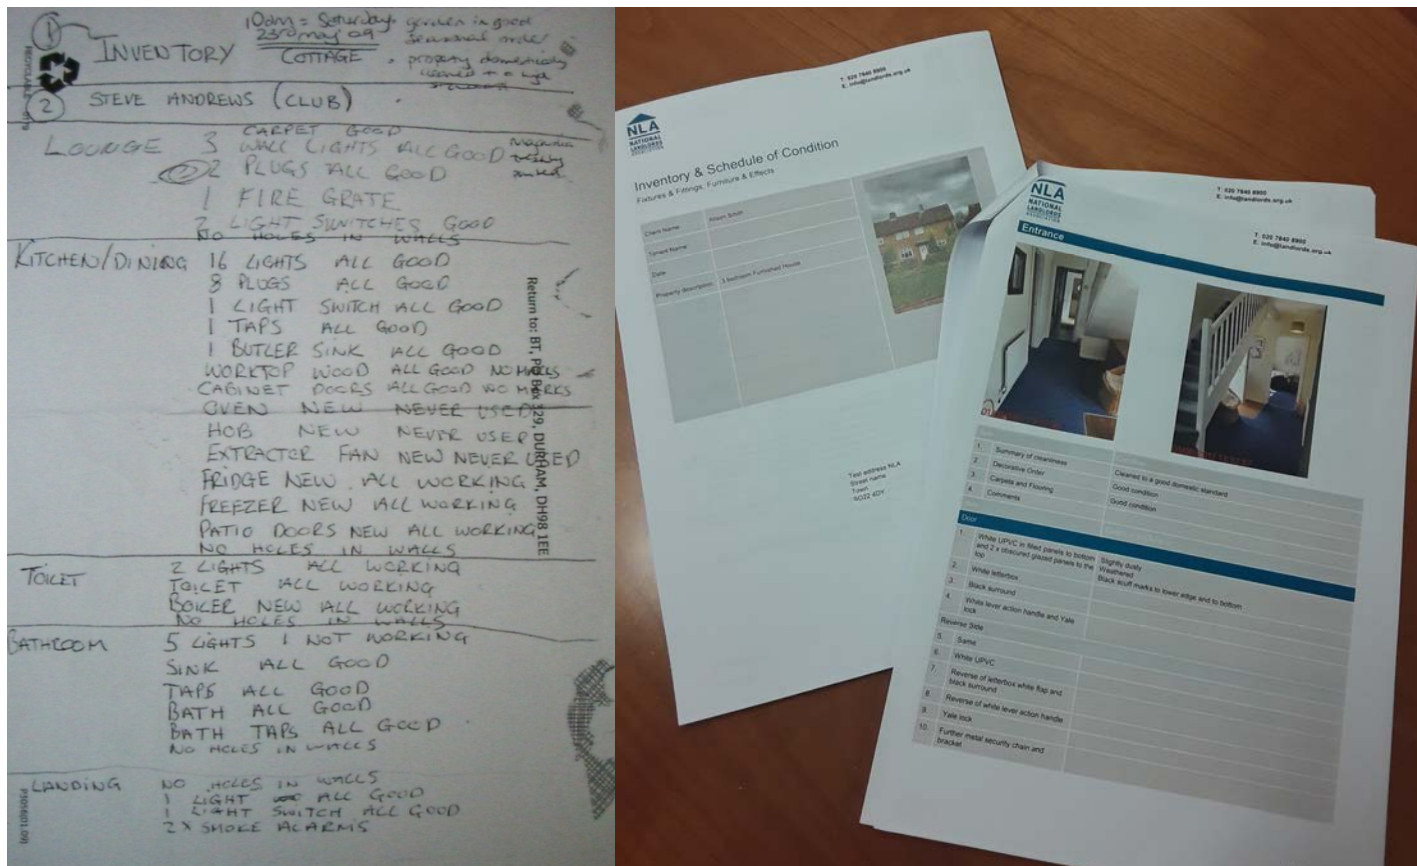 1
INVENTORY
10am = Saturday
23rd may 09
COTTAGE
garden in good
seasonal order
property domestically
cleaned to a high
standard
2
STEVE ANDREWS (CLUB)
LOUNGE
CARPET GOOD
3 WALL LIGHTS ALL GOOD
2 PLUGS ALL GOOD
Magnolia
1 FIRE GRATE
2 LIGHT SWITCHES GOOD
NO HOLES IN WALLS
KITCHEN/DINING 16 LIGHTS ALL GOOD
8 PLUGS ALL GOOD
1 LIGHT SWITCH ALL GOOD
1 TAPS ALL GOOD
1 BUTLER SINK ALL GOOD
WORKTOP WOOD ALL GOOD NO MARKS
CABINET DOORS ALL GOOD NO MARKS
OVEN NEW NEVER USED
HOB NEW NEVER USED
EXTRACTOR FAN NEW NEVER USED
FRIDGE NEW ALL WORKING
FREEZER NEW ALL WORKING
PATIO DOORS NEW ALL WORKING
NO HOLES IN WALLS
TOILET 2 LIGHTS ALL WORKING
TOILET ALL WORKING
BOILER NEW ALL WORKING
NO HOLES IN WALLS
BATHROOM 5 LIGHTS 1 NOT WORKING
SINK ALL GOOD
TAPS ALL GOOD
BATH ALL GOOD
BATH TAPS ALL GOOD
NO HOLES IN WALLS
LANDING NO HOLES IN WALLS
1 LIGHT ALL GOOD
1 LIGHT SWITCH ALL GOOD
2 X SMOKE ALARMS
Return to: BT, PP Box 329, DURHAM, DH98 1EE
T: 020 7840 8900
E: info@landlords.org.uk
NLA
NATIONAL
LANDLORDS
ASSOCIATION
Inventory & Schedule of Condition
Fixtures & Fittings, Furniture & Effects
Client Name Alison Smith
Tenant Name
Date
Property description 3 bedroom Furnished House
Test address NLA
Street name
Town
SO22 4DY
NLA
NATIONAL
LANDLORDS
ASSOCIATION
T: 020 7840 8900
E: info@landlords.org.uk
T: 020 7840 8900
E: info@landlords.org.uk
Entrance
1. Summary of cleanliness Cleaned to a good domestic standard
2. Decorative Order Good condition
3. Carpets and Flooring Good condition
4. Comments
Door
1. White UPVC in filled panels to bottom Slightly dusty
and 2 x obscured glazed panels to the Weathered
top Black scuff marks to lower edge and to bottom
2. White letterbox
3. Black surround
4. White lever action handle and Yale
lock
Reverse Side
5. Same
6. White UPVC
7. Reverse of letterbox white flap and
black surround
8. Reverse of white lever action handle
9. Yale lock
10. Further metal security chain and
bracket